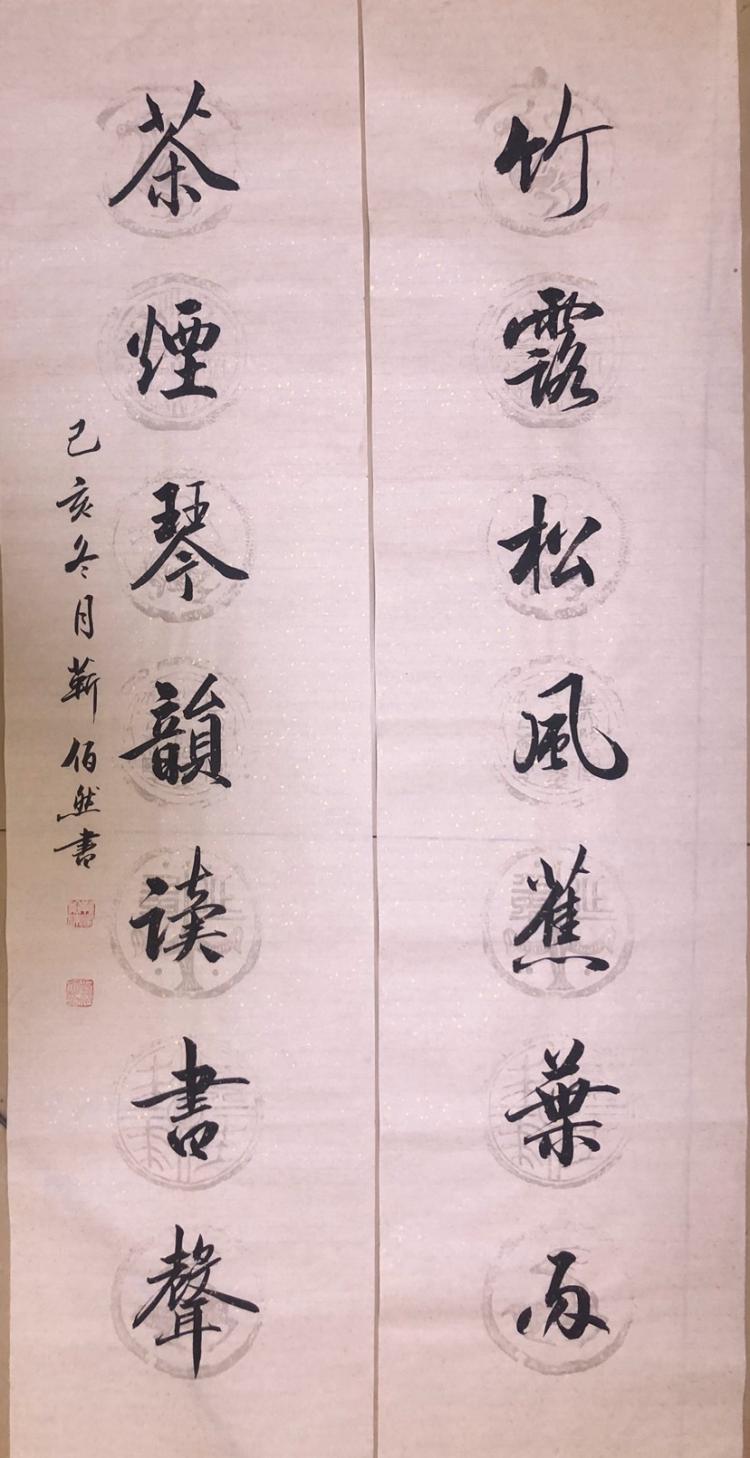 竹露松風蕉葉雨
茶煙琴韻读書聲
己亥冬月蕲伯然書